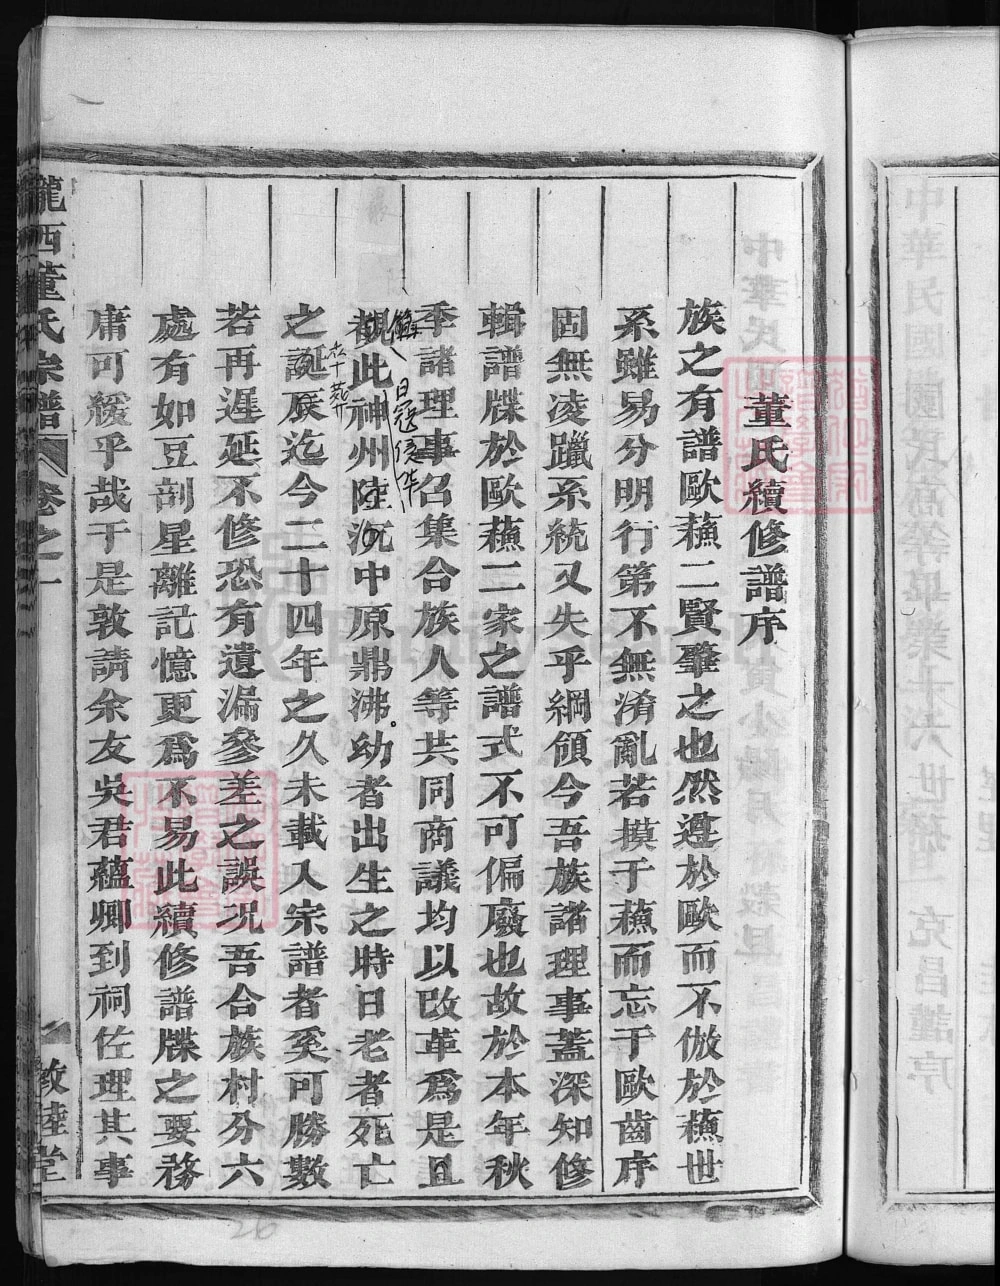 董氏續修譜序
族之有譜歐蘓二賢肇之也然遵於歐而不倣於蘓世
系雖易分明行第不無淆亂若摸于蘓而忘于歐齒序
固無凌躐系統又失乎綱領今吾族諸理事蓋深知修
輯譜牒於歐蘓二家之譜式不可偏廢也故於本年秋
季諸理事召集合族人等共同商議均以改革爲是且
日寇侵华
觀此神州陸沉中原鼎沸幼者出生之時日老者死亡
之誕厥迄今二十四年之久未載入宗譜者奚可勝數
若再遲延不修恐有遺漏參差之誤况吾合族村分六
處有如豆剖星離記憶更爲不易此續修譜牒之要務
庸可緩乎哉于是敦請余友吳君蘊卿到祠佐理其事
隴西董氏宗譜 卷之一 敦睦堂
26